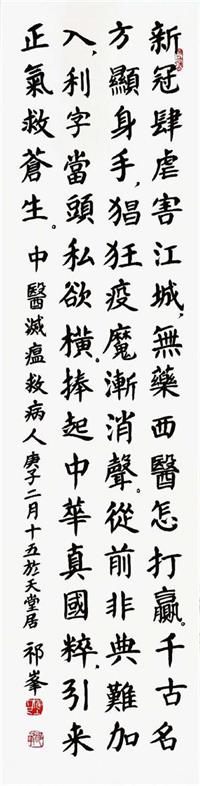 新冠肆虐害江城,無藥西醫怎打贏。千古名
方顯身手,猖狂疫魔漸消聲。從前非典難加
入,利字當頭私欲橫,捧起中華真國粹,引来
正氣救蒼生。中醫滅瘟救病人 庚子二月十五於天堂居 祁峯